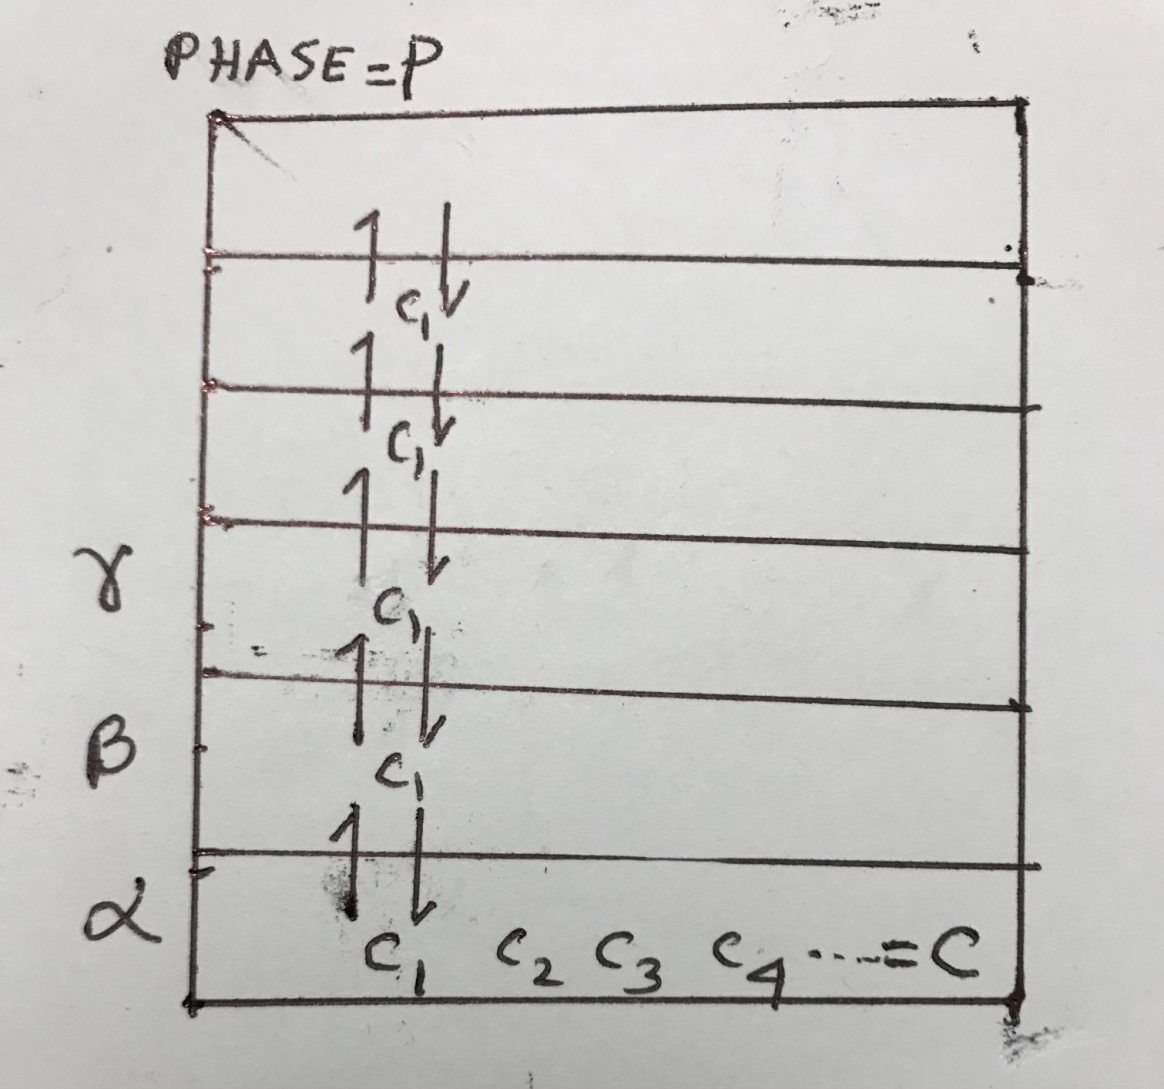 PHASE=P
C1
C1
γ
C1
β
C1
α
C1 C2 C3 C4 ....=C